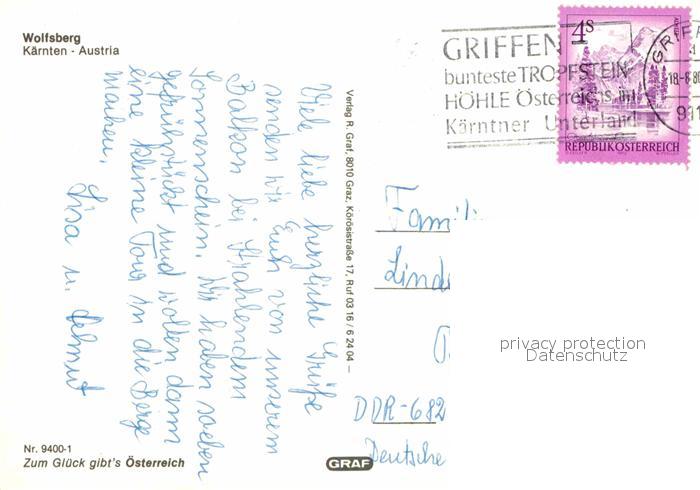 Wolfsberg
Kärnten - Austria
Viele liebe herzliche Grüße
senden wir Euch von unserem
Balkon bei strahlendem
Sonnenschein. Wir haben soeben
gefrühstückt und wollen dann
eine kleine Tour in die Berge
machen.
Lisa u. Helmut
Nr. 9400-1
Zum Glück gibt's Österreich
Verlag R. Graf, 8010 Graz, Körösistraße 17, Ruf 03 16 / 6 24 04 –
GRAF
GRIFFEN
bunteste TROPFSTEIN-
HÖHLE Österreichs im
Kärntner Unterland
4S
REPUBLIK ÖSTERREICH
GRIFFE
18-6 80
911
Famili
Linde
DDR-682
Deutsche
privacy protection
Datenschutz